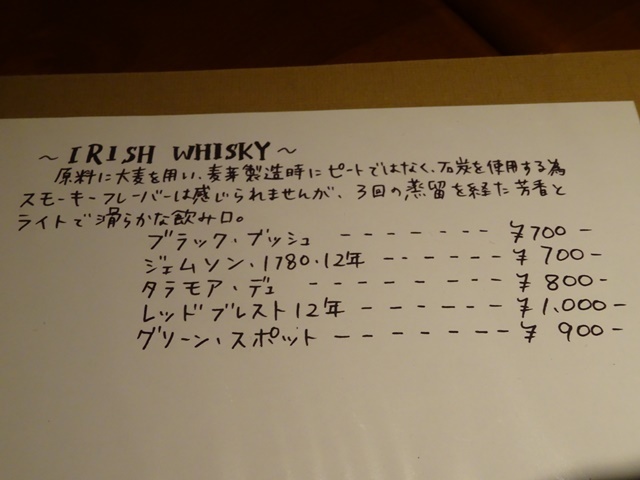 ～IRISH WHISKY～
原料に大麦を用い、麦芽製造時にピートではなく、石炭を使用する為
スモーキーフレーバーは感じられませんが、3回の蒸留を経た芳香と
ライトで滑らかな飲み口。
ブラック・ブッシュ - - - - - - - ¥700-
ジェムソン・1780・12年 - - - - - - ¥700-
タラモア・デュ - - - - - - - - ¥800-
レッドブレスト12年 - - - - - - - ¥1,000-
グリーン・スポット - - - - - - - - ¥900-